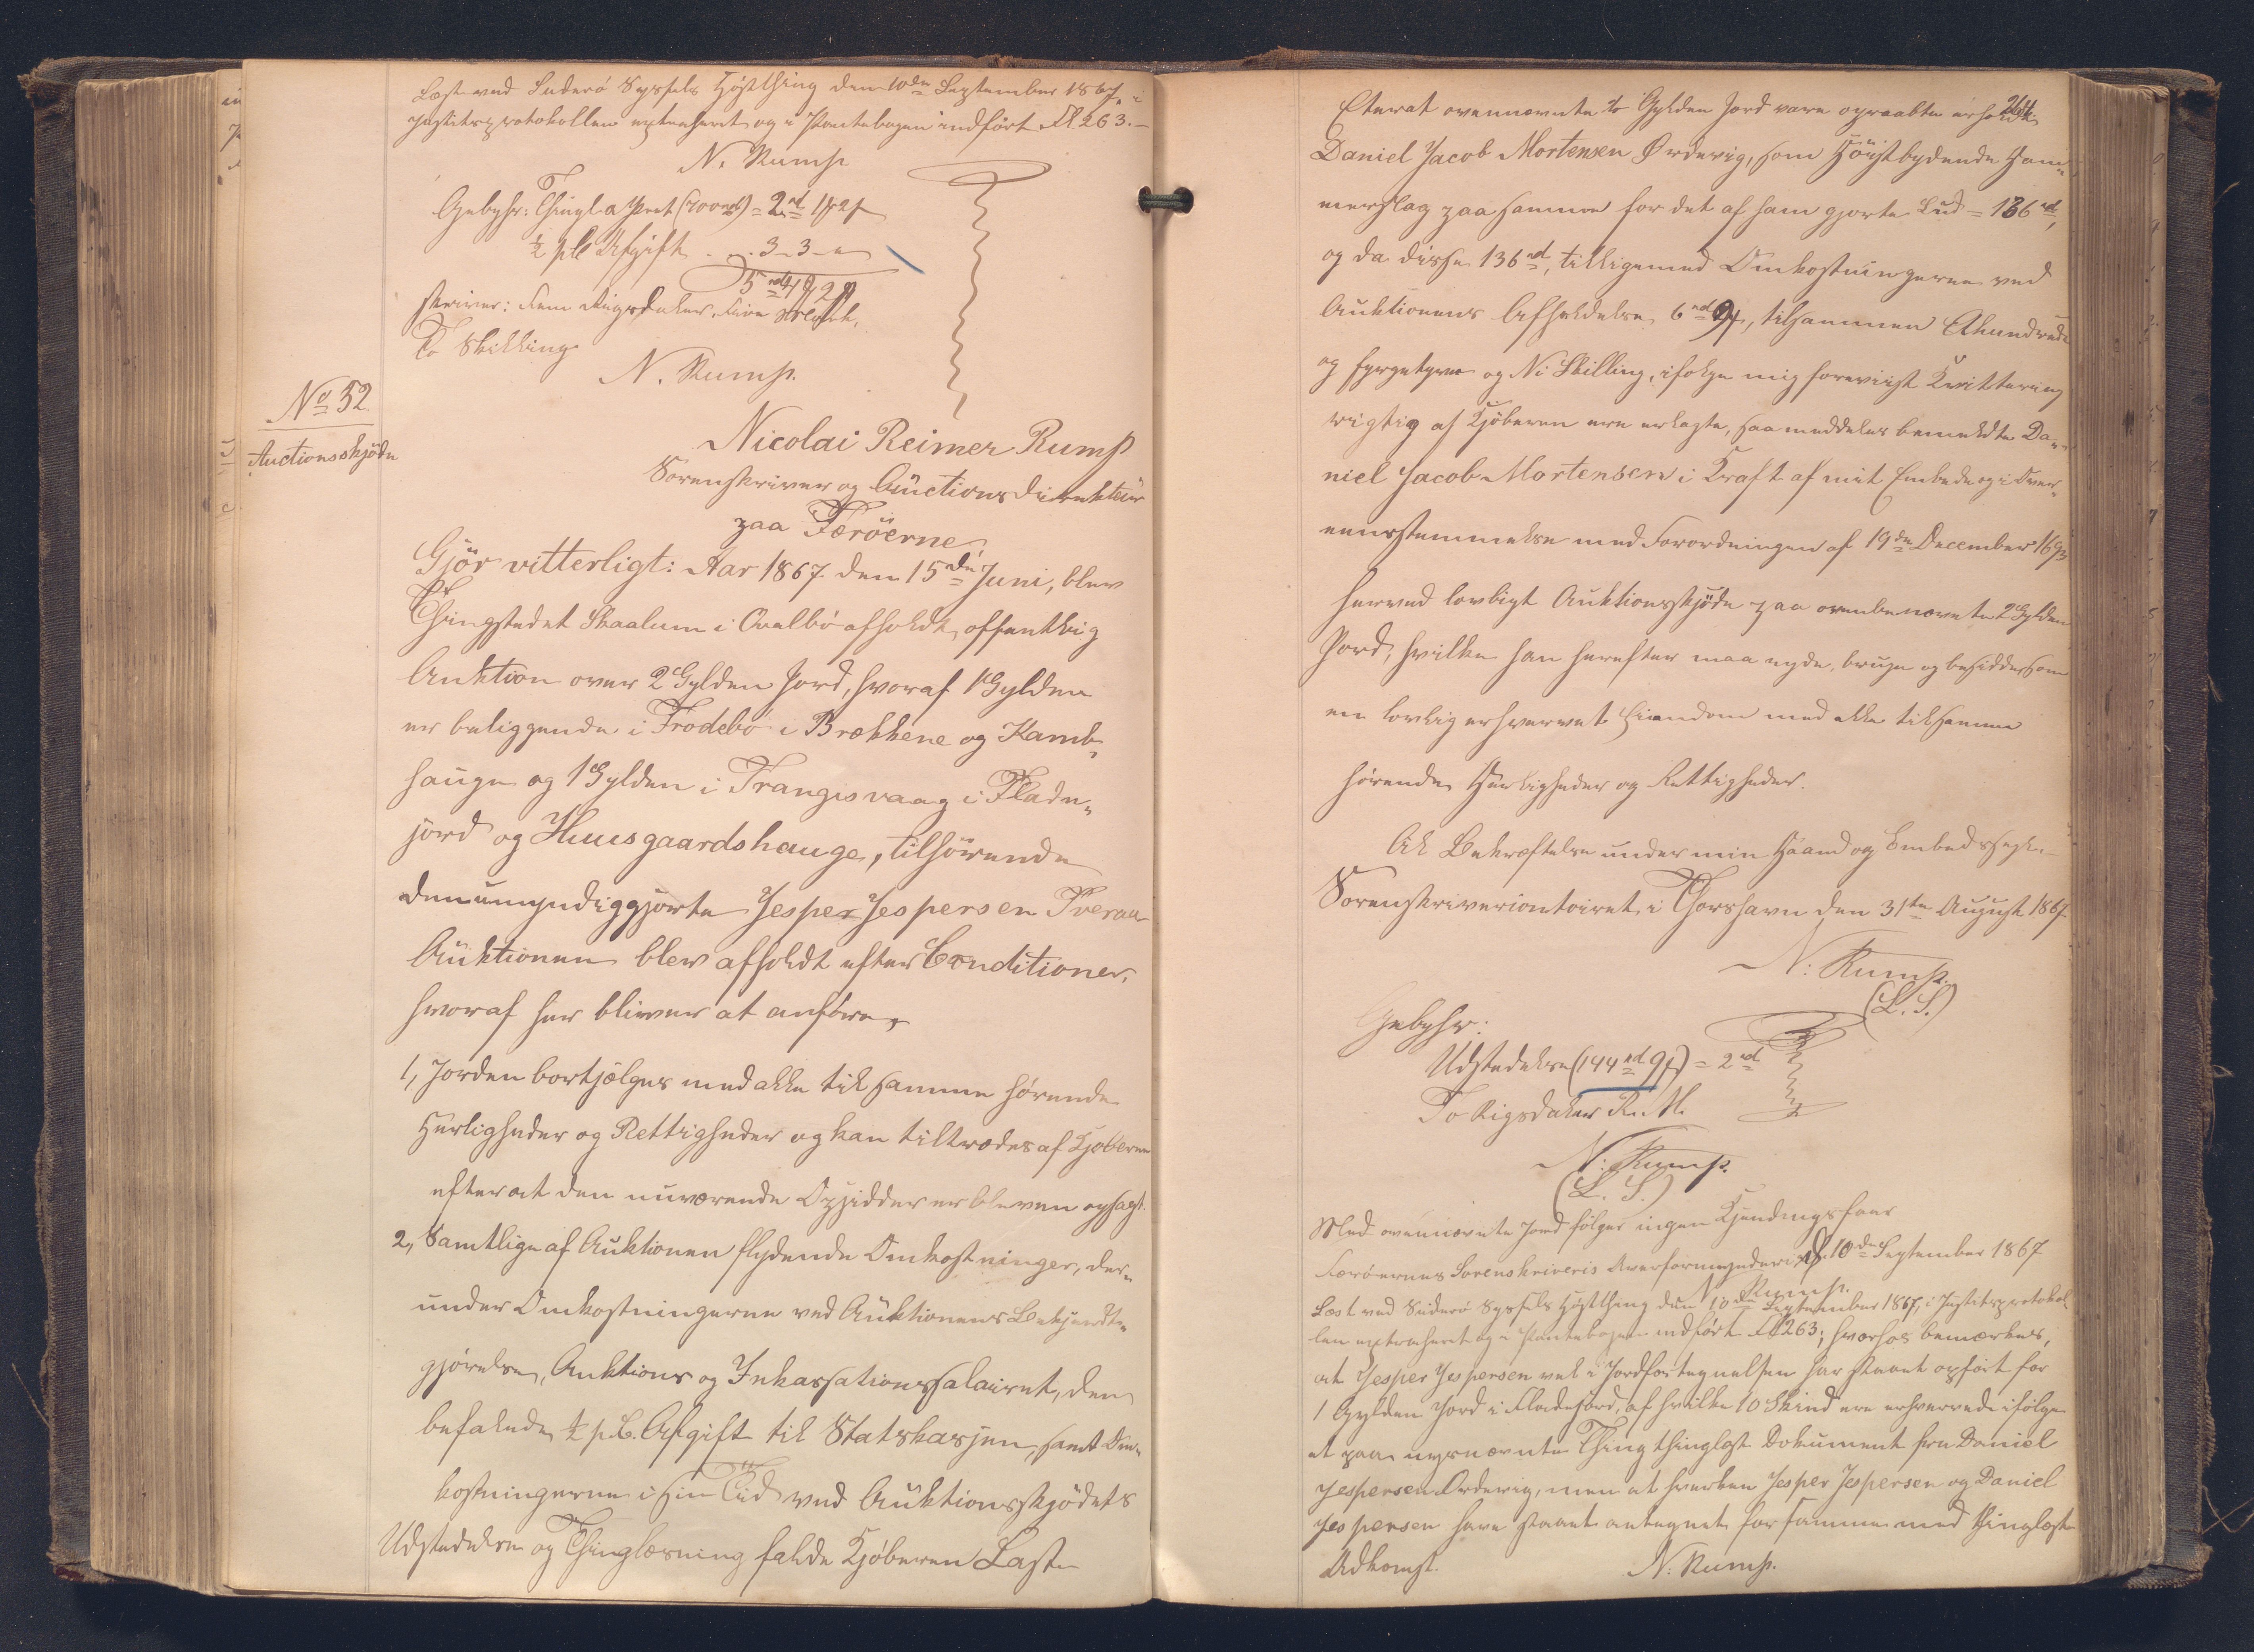 Læst ved Suderö Syssels Høstthing den 10de September 1867, i
Justitsprotokollen extraheret og i Pantebogen indført Fl. 263.
N. Rump
Gebyhr: Thingl. a Prot (700rd) = 2rd 1ß 2ß
½ pC Afgift . . 3 - 3 -
5rd 4ß 2ß
skriver: Fem Rigsdaler, Fire Mark,
To Skilling
N. Rump.
No 52.
Auctionsskjöde
Nicolai Reimer Rump
Sorenskriver og Auctionsdirekteür
paa Færöerne
Gjör vitterligt: Aar 1867 den 15de Juni, blev
Thingstedet Skaalum i Qvalbö afholdt offentlig
Auktion over 2 Gylden Jord, hvoraf 1 Gylden
er beliggende i Frodebö i Brekkene og Kamb-
hauge og 1 Gylden i Trangisvaag i Flade-
jord og Huusgaardshauge, tilhörende
den umyndiggjorte Jesper Jespersen Tveraa
Auktionen blev afholdt efter Conditioner,
hvoraf her bliver at anföre,
1, Jorden bortsælges med alle til samme hørende
Herligheder og Rettigheder og kan tiltrædes af Kjøberen
efter at den nuværende Opsidder er bleven opsagt.
2, Samtlige af Auktionen flydende Omkostninger, der-
under Omkostningerne ved Auktionens Bekjendt-
gjörelse, Auktions og Inkassationssalairet, den
befalede ½ pC. Afgift til Statskassen, samt Om-
kostningerne i sin Tiid ved Auktionsskjödets
Udstedelse og Thinglæsning falde Kjøberen Last
264
Efterat ovennævnte to Gylden Jord vare opraabte erholdt
Daniel Jacob Mortensen Ørdevig, som Høistbydende Ham-
merslag paa samme for det af ham gjorte Bud = 136rd,
og da disse 136rd, tilligemed Omkostningerne ved
Auktionens Afholdelse 6rd 9ß, tilsammen Ethundrede
og fyrgetyve og Ni Skilling, ifølge mig foreviist Kvittering
rigtig af Kjöberen ere erlagte, saa meddeles bemeldte Da-
niel Jacob Mortensen i Kraft af mit Embede og i Over-
eensstemmelse med Forordningen af 19de December 1693
herved lovligt Auktionsskjöde paa ovenbenævnte 2 Gylden
Jord, hvilke han herefter maa nyde, bruge og besidde som
en lovlig erhvervet Eiendom med alle til samme
hörende Herligheder og Rettigheder.
Til Bekræftelse under min Haand og Embedssegl.
Sorenskriveriontoiret i Thorshavn den 31te August 1867
N: Rump.
(L. S.)
Gebyhr:
Udstedelse (144rd 9ß) = 2rd
To Rigsdaler R. M.
N: Rump.
(L. S.)
Med ovennævnte Jord følger ingen Kjendingsfaar
Færöernes Sorenskriveri Overformynderi d. 10de September 1867
N. Rump.
Læst ved Suderö Syssels Høstthing den 10de September 1867, i Justitsprotokol-
len extraheret og i Pantebogen indført Fl 263; hvorhos bemærkes,
at Jesper Jespersen vel i Jordfortegnelsen har staaet opført for
1 Gylden Jord i Fladejord, af hvilke 10 Skind ere erhvervede ifølge
et paa nysnævnte Thing thinglæst Dokument fra Daniel
Jespersen Ordevig, men at hverken Jesper Jespersen og Daniel
Jespersen have staaet antegnet for samme med thinglæst
Adkomst. N: Rump.